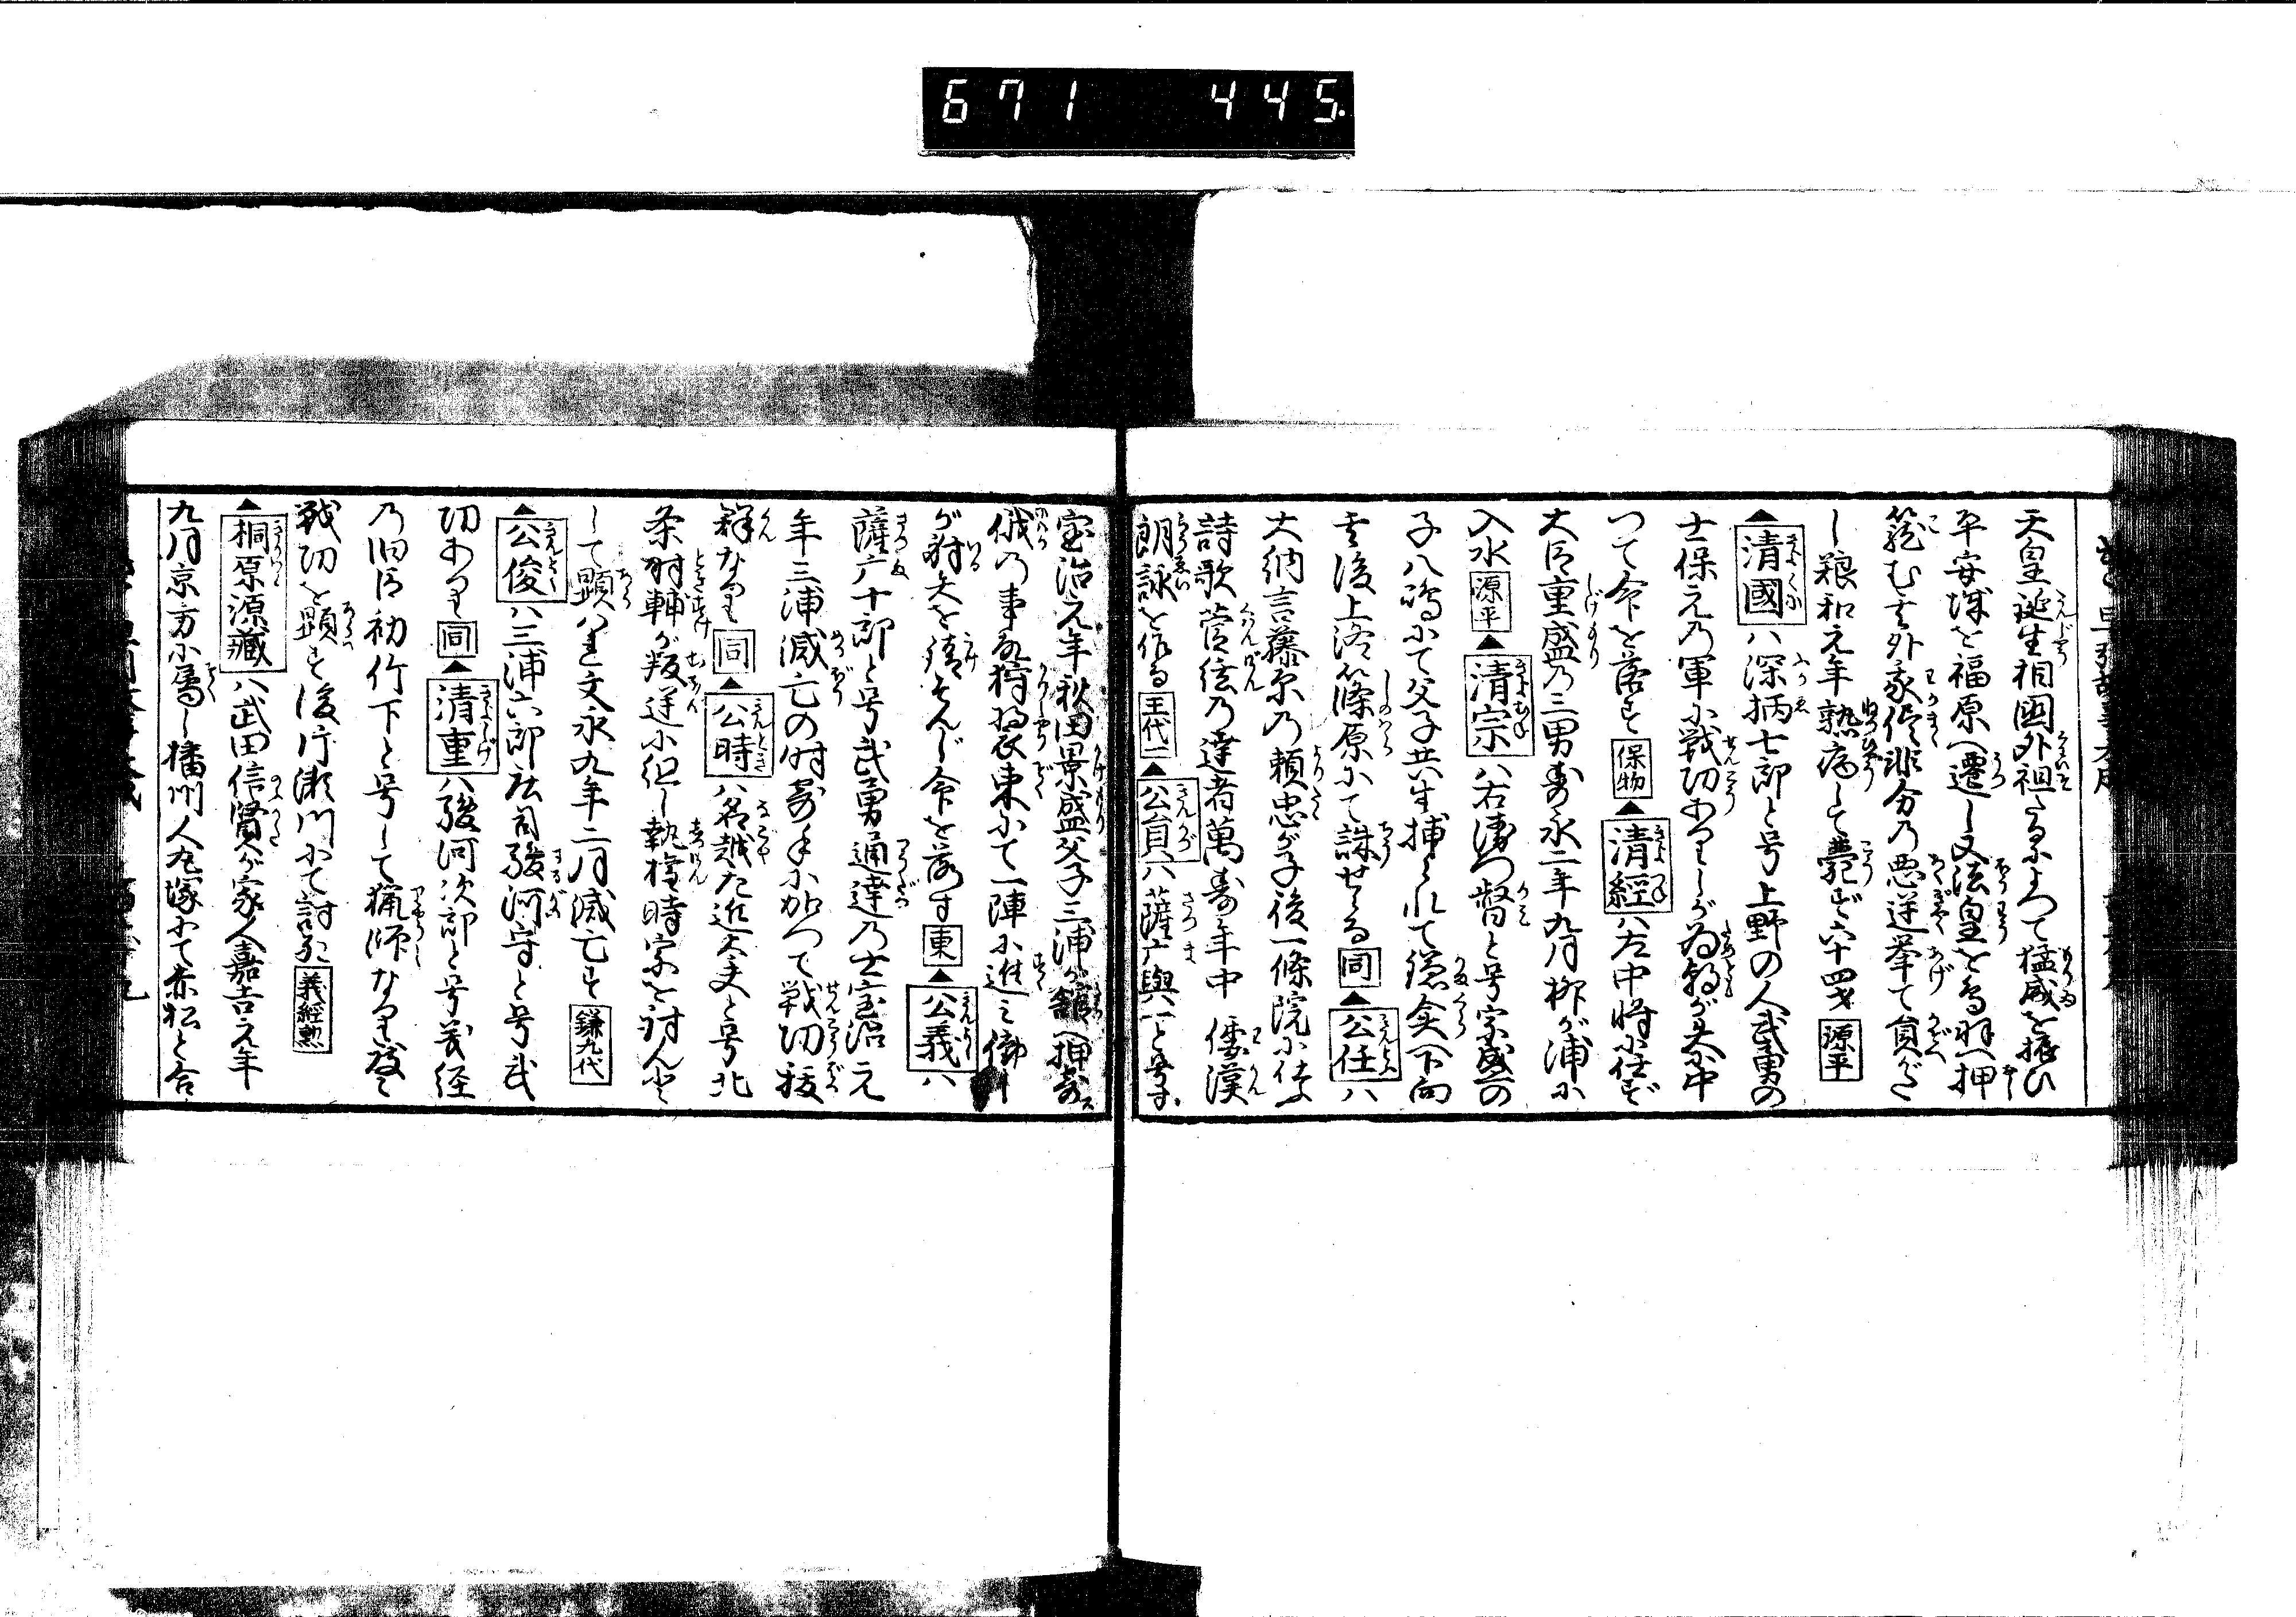 671 445
天皇誕生相國外祖たるによつて猛威を振ひ
平安城を福原へ遷し又法皇を鳥羽へ押
籠むその外我侭非分の悪逆挙て員がた
し粮和元年熱病して薨ず六十四才 源平
▲清國ハ深栖七郎と号上野の人武勇の
士保元の軍に戦功ありしが為朝が矢に中
つて命を落す 保物 ▲清經ハ左中将に任ず
大臣重盛の三男寿永二年九月柳が浦に
入水 源平 ▲清宗ハ右衛門督と号宗盛の
子八嶋にて父子共生捕られて鎌倉へ下向
其後上洛篠原にて誅せらる 同 ▲公任ハ
大納言藤原の頼忠が子後一條院に仕ふ
詩歌管絃の達者萬寿年中倭漢
朗詠を作る 王代一 ▲公員ハ薩广與一と号す
宝治元年秋田景盛父子三浦が舘へ押寄ス
俄の事故狩装束にて一陣に進ミ
が射矢を請そんじ命を落す 東 ▲公義ハ
薩广十郎と号武勇通達の士宝治元
年三浦滅亡の時寄手に加つて戦功抜
群なり 同 ▲公時ハ名越左近大夫と号北
条時輔が叛逆に組し執權時宗を討んと
して顕ハれ文永九年二月滅亡す 鎌九代
▲公俊ハ三浦六郎庄司駿河守と号武
功あり 同 ▲清重ハ駿河次郎と号義経
の旧臣初竹下と号して猟師なり度々
戦功を顕す後片瀬川にて討る 義経勲
▲桐原源藏ハ武田信賢が家人嘉吉元年
九月京方に属し播州人丸塚にて赤松と合